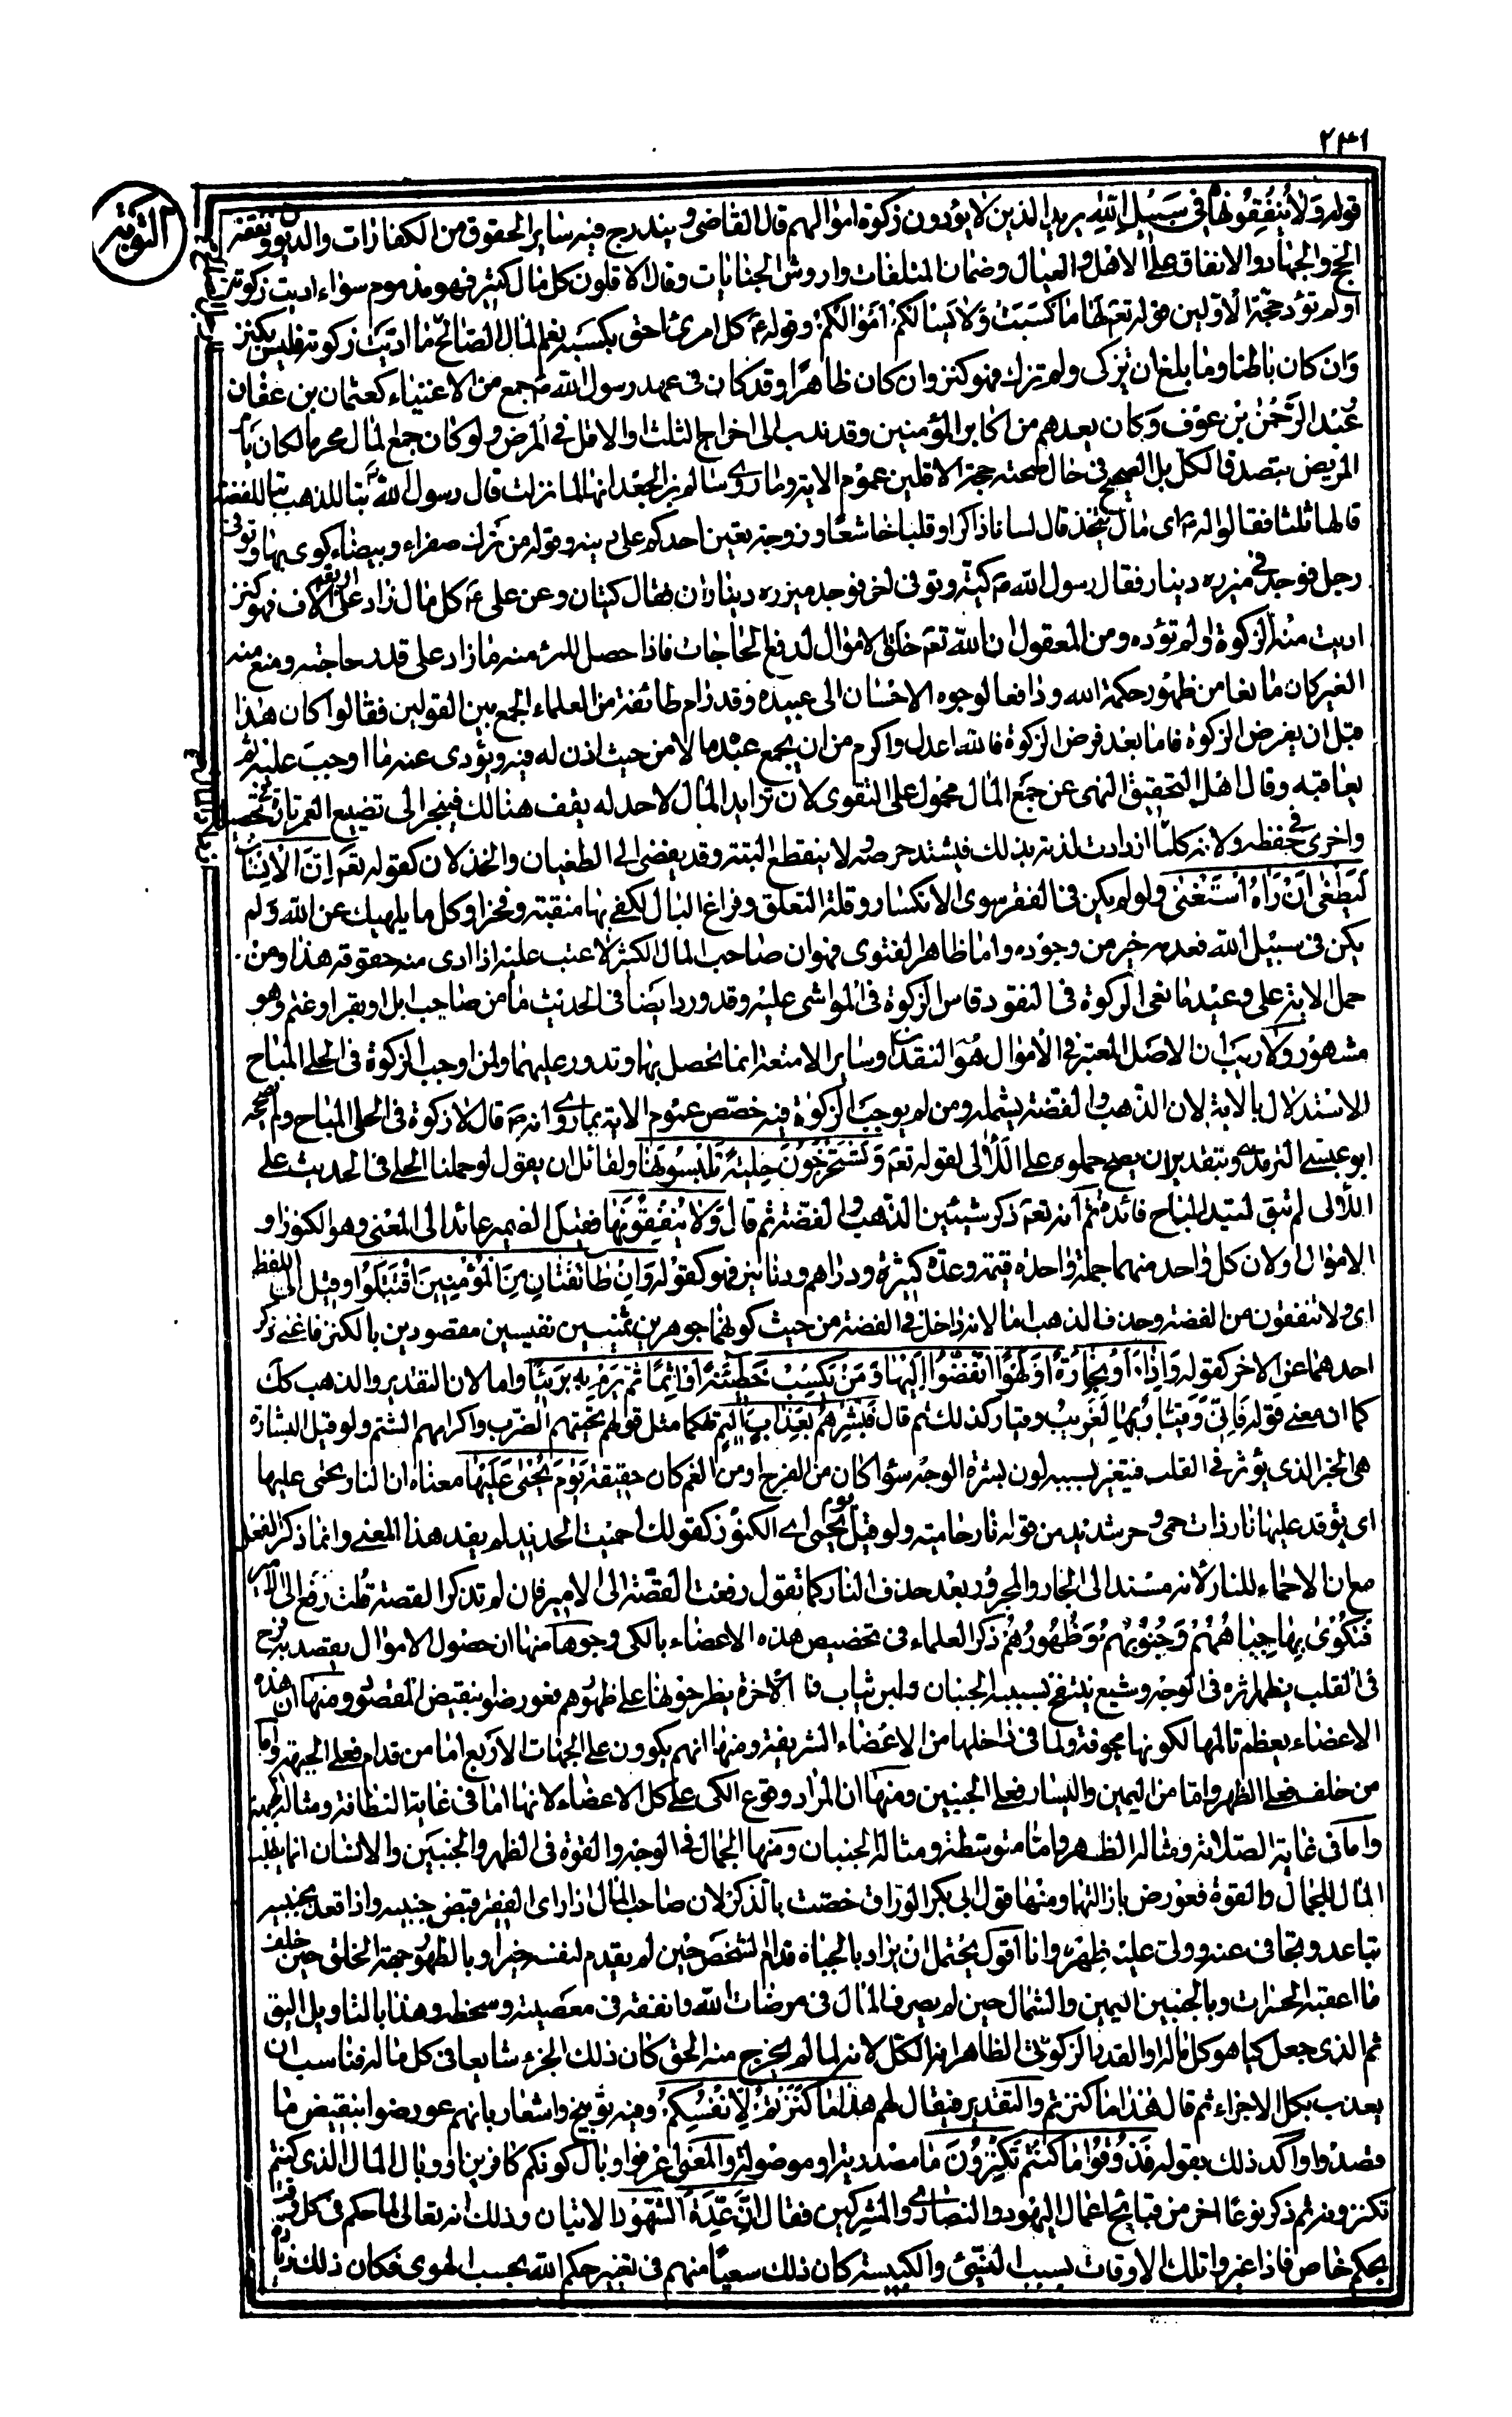 ٢٣١
التوبة
قوله ولا ينفقونها في سبيل الله يريد الذين لا يؤدون زكوة اموالهم قال القاضي و يندرج فيه سائر الحقوق من الكفارات والديون ونفقة
الحج والجهاد والانفاق على الاهل والعيال وضمان المتلفات واروش الجنايات وقال الاقلون كل مال كثير فهو مذموم سواء اديت زكوته
او لم تؤد حجة الاولين قوله تعم لها ما كسبت ولا يسالكم اموالكم وقوله ع كل امرئ احق بكسبه نعم المال الصالح ما اديت زكوته فليس بكنز
وان كان باطنا وما بلغ ان يزكى ولم تزك فهو كنز وان كان ظاهرا وقد كان في عهد رسول الله ص جمع من الاغنياء كعثمان بن عفان
عبد الرحمن بن عوف وكان يعدهم من اكابر المؤمنين وقد ندب الى اخراج الثلث والاقل في المرض ولو كان جمع المال محرما لكان يامر
المريض بتصدق الكل بل الصحيح في حال صحته حجة الاقلين عموم الاية وما روى سالم بن الجعد انها لما نزلت قال رسول الله ص تبا للذهب تبا للفضة
قالها ثلثا فقالوا له م اي مال نتخذ قال لسانا ذاكرا وقلبا خاشعا وزوجة تعين احدكم على دينه وقوله من ترك صفراء وبيضاء كوى بها وتوفى
رجل فوجد في مئزره دينار فقال رسول الله ص كية وتوفى اخر فوجد في مئزره ديناران فقال كيتان وعن علي ع كل مال زاد على اربعة الاف فهو كنز
اديت منه الزكوة او لم تؤده ومن المعقول ان الله تعم خلق الاموال لدفع الحاجات فاذا حصل للمرء منه ما زاد على قدر حاجته ومنع منه
الغير كان مانعا من ظهور حكمة الله ودافعا لوجوه الاحسان الى عبيده وقد رام طائفة من العلماء الجمع بين القولين فقالوا كان هذا
قبل ان يفرض الزكوة فاما بعد فرض الزكوة فالله اعدل واكرم من ان يجمع عبده مالا من حيث اذن له فيه ويؤدى عنه ما اوجب عليه ثم
يعاقبه وقال اهل التحقيق النهى عن جمع المال محمول على التقوى لان تزايد المال لا حد له يقف هنالك فينجر الى تضييع العمر تارة في تحصيله
واخرى في حفظه ولانه كلما ازدادت لذته بذلك فيشتد حرصه لا ينقطع البتة وقد يفضى الى الطغيان والخذلان كقوله تعم ان الانسان
ليطغى ان راه استغنى ولو لم يكن في الفقر سوى الانكسار وقلة التعلق وفراغ البال لكفى بها منقبة وفخرا وكل ما يلهيك عن الله ولم
يكن في سبيل الله فعدمه خير من وجوده واما ظاهر الفتوى فهو ان صاحب المال الكثير لا عتب عليه اذا ادى منه حقوقه هذا ومن
حمل الاية على وعيد مانعى الزكوة في النقود قاس الزكوة في المواشى عليه وقد ورد ايضا في الحديث ما من صاحب ابل او بقر او غنم وهو
مشهور ولا ريب ان الاصل المعتبر في الاموال هو النقدان وسائر الامتعة انما تحصل بها وتدور عليهما ولمن اوجب الزكوة في الحلى المباح
الاستدلال بالاية لان الذهب والفضة يشمله ومن لم يوجب الزكوة فيه خصص عموم الاية بما روى انه ص قال لا زكوة في الحلى المباح ولم يصححه
ابو عيسى الترمذى وبتقدير ان يصح حملوه على اللآلى لقوله تعم وتستخرجون حلية تلبسونها ولقائل ان يقول لو حملنا الحلى في الحديث على
اللآلى لم تبق لقيد المباح فائدة ثم انه تعم ذكر شيئين الذهب والفضة ثم قال ولا ينفقونها فقيل الضمير عائد الى المعنى وهو الكنوز او
الاموال او لان كل واحد منهما جملة واحدة قيمة وعدة كثيرة ودراهم ودنانير فهو كقوله وان طائفتان من المؤمنين اقتتلوا وقيل الى اللفظ
اى ولا ينفقون من الفضة وحذف الذهب اما لانه داخل في الفضة من حيث كونهما جوهرين ثمينين نفيسين مقصودين بالكنز فاغنى ذكر
احدهما عن الاخر كقوله واذا راوا تجارة او لهوا انفضوا اليها ومن يكسب خطيئة او اثما ثم يرم به بريئا واما لان التقدير والذهب كك
كما ان معنى قوله فانى وقيار بها لغريب وقيار كذلك ثم قال فبشرهم بعذاب اليم تهكما مثل قولهم تحيتهم الضرب واكرامهم الشتم ولو قيل البشارة
هى الخبر الذى يؤثر في القلب فيتغير بسببه لون بشرة الوجه سواء كان من الفرح او من الغم كان حقيقة يوم يحمى عليها معناه ان النار تحمى عليها
اى يوقد عليها نار ذات حمى وحر شديد من قوله نار حامية ولو قيل يوم يحمى اى الكنوز كقولك احميت الحديد لم يفد هذا المعنى وانما ذكر الفعل
مع ان الاحماء للنار لانه مسند الى الجار والمجرور بعد حذف النار كما تقول رفعت القصة الى الامير فان لم تذكر القصة قلت رفع الى الامير
فتكوى بها جباههم وجنوبهم وظهورهم ذكر العلماء في تخصيص هذه الاعضاء بالكى وجوها منها ان حصول الاموال يقصد به فرح
في القلب يظهر اثره في الوجه وشبع ينتفخ بسببه الجنبان ولبس ثياب فاخرة يطرحونها على ظهورهم فعورضوا بنقيض المقصود ومنها ان هذه
الاعضاء يعظم تالمها لكونها مجوفة ولما في داخلها من الاعضاء الشريفة ومنها انهم يكوون على الجهات الاربع اما من قدام فعلى الجبهة واما
من خلف فعلى الظهر واما من اليمين واليسار فعلى الجنبين ومنها ان المراد وقوع الكى على كل الاعضاء لانها اما في غاية النظافة ومثاله الجبهة
واما في غاية الصلابة ومثاله الظهر واما متوسطة ومثاله الجنبان ومنها الجمال في الوجه والقوة في الظهر والجنبين والانسان انما يطلب
المال للجمال والقوة فعورض بازالتها ومنها قول ابى بكر الوراق خصت بالذكر لان صاحب المال اذا راى الفقير قبض جبينه واذا قعد بجنبيه
تباعد وتجافى عنه وولى عليه ظهره وانا اقول يحتمل ان يراد بالجباه قدام الشخص حين لم يقدم لنفسه خيرا وبالظهور جهة الخلق حين خلف
ما اعقبه الحسرات وبالجنبين اليمين والشمال حين لم يصرف المال في مرضات الله وانفقه في معصيته وسخطه وهذا بالتاويل اليق
ثم الذى جعل كيا هو كل ماله او القدر الزكوتى الظاهر انه الكل لانه لما لم يخرج منه الحق كان ذلك الجزء شايعا في كل ماله فناسب ان
يعذب بكل الاجزاء ثم قال هذا ما كنزتم والتقدير فيقال لهم هذا ما كنزتم لانفسكم وفيه توبيخ واشعار بانهم عورضوا بنقيض ما
قصدوا واكد ذلك بقوله فذوقوا ما كنتم تكنزون ما مصدرية او موصولة والمعنى اعرفوا وبال كونكم كافرين او وبال المال الذى كنتم
تكنزونه ثم ذكر نوعا اخر من قبايح اعمال اليهود والنصارى والمشركين فقال ان عدة الشهور الايتان وذلك انه تعالى لما حكم في كل وقت
بحكم خاص فاذا غيروا تلك الاوقات بسبب النسئ والكبيسة كان ذلك سعيا منهم في تغيير حكم الله بحسب الهوى فكان ذلك زيادة